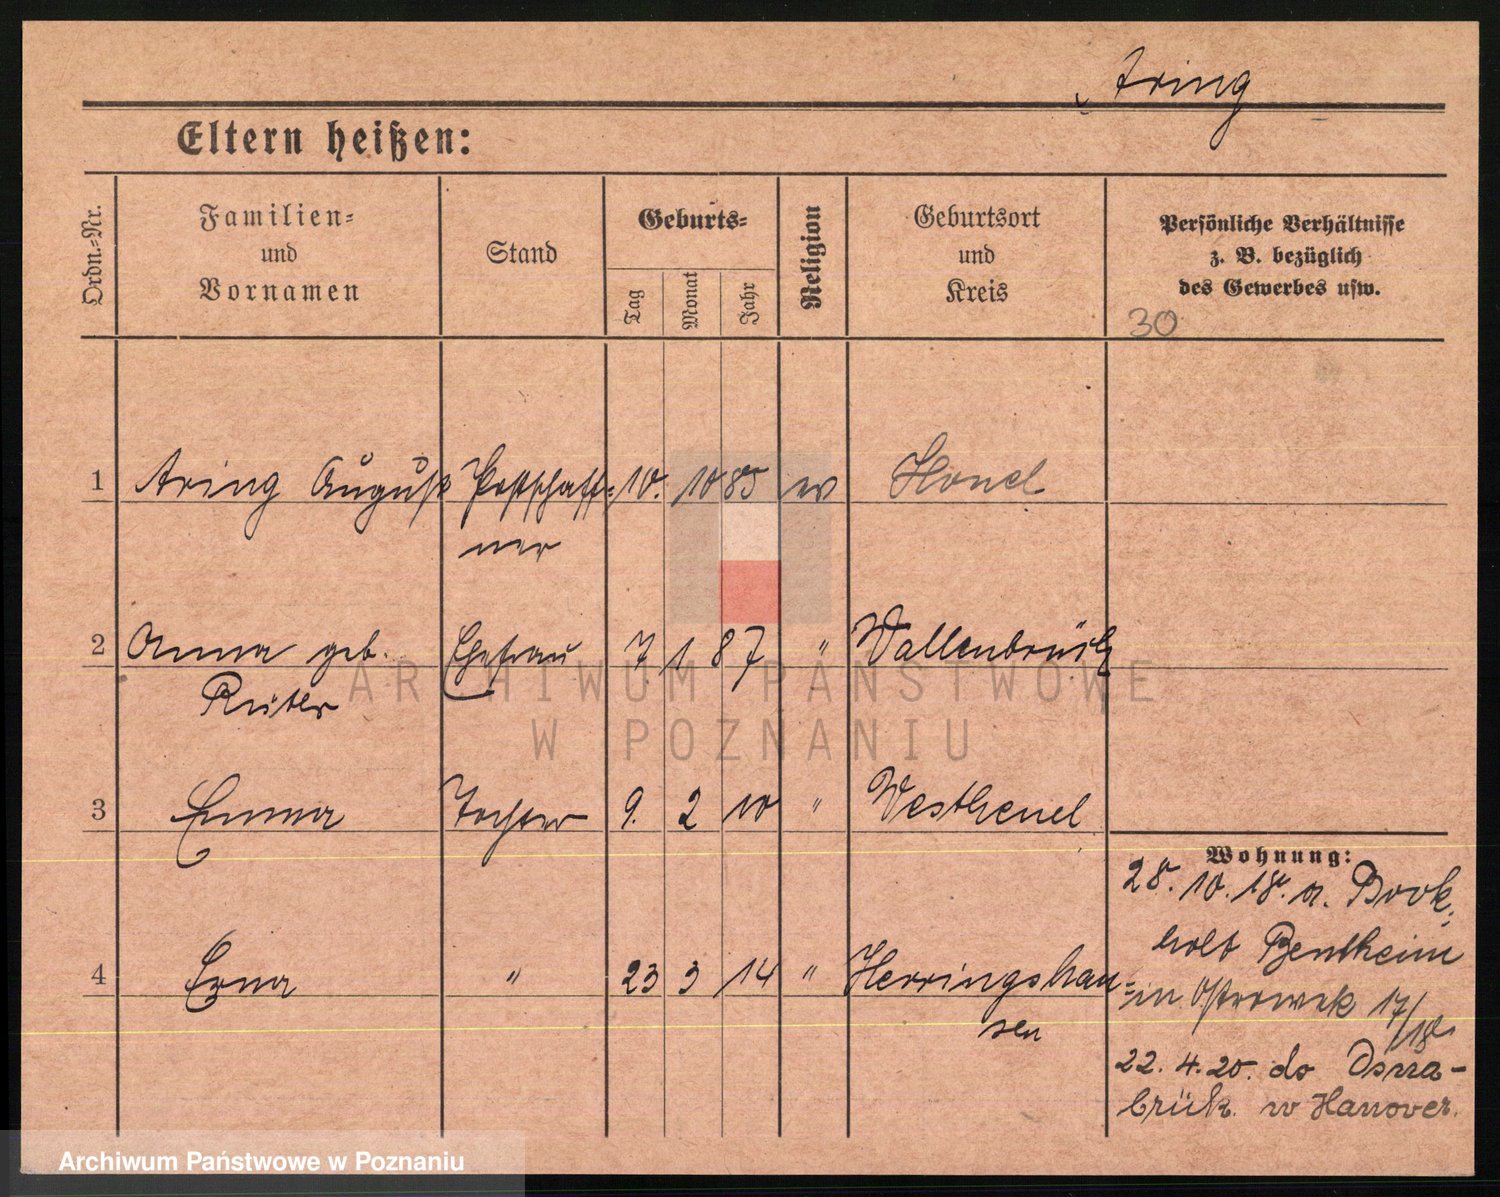 Aring
Eltern heißen:
Ordn.-Nr.
Familien-
und
Vornamen
Stand
Geburts-
Tag
Monat
Jahr
Religion
Geburtsort
und
Kreis
Persönliche Verhältnisse
z. B. bezüglich
des Gewerbes usw.
30
1 Aring August Postschaff- 10. 10 85 ev
ner
2 Anna geb. Ehefrau 7 1 87 " Wallenbrück
Rüter
3 Emma Tochter 9. 2 10 "
4 Erna " 23 3 14 " Herringshau-
sen
Wohnung:
28. 10. 18. a. Book-
holt Bentheim
in Ostrowek 17/18
22. 4. 20. do Osna-
brük w Hanover.
ARCHIWUM PAŃSTWOWE
W POZNANIU
Archiwum Państwowe w Poznaniu